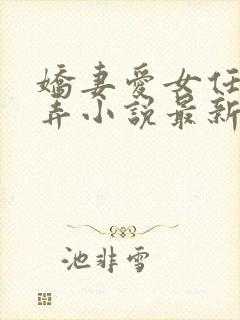 嬌妻愛女任
弄小說最新
池非雪